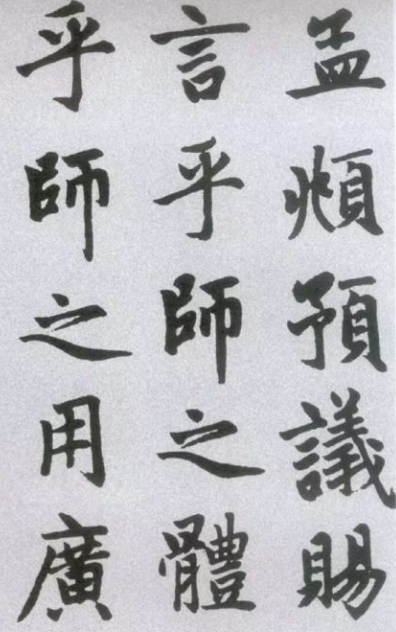 孟頫預議賜
言乎師之體
乎師之用廣